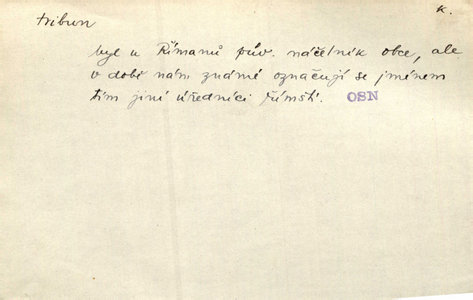 k.
tribun
byl u Římanů pův. náčelník obce, ale
v době nám známé označují se jménem
tím jiní úředníci římští. OSN